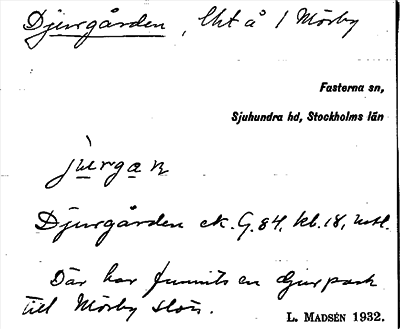 Djurgården, lht å 1 Mörby
Fasterna sn,
Sjuhundra hd, Stockholms län
ju̇rgan
Djurgården ek. G. 84, kb. 18, utsl.
Där har funnits en djurpark
till Mörby slott.
L. MADSÉN 1932.